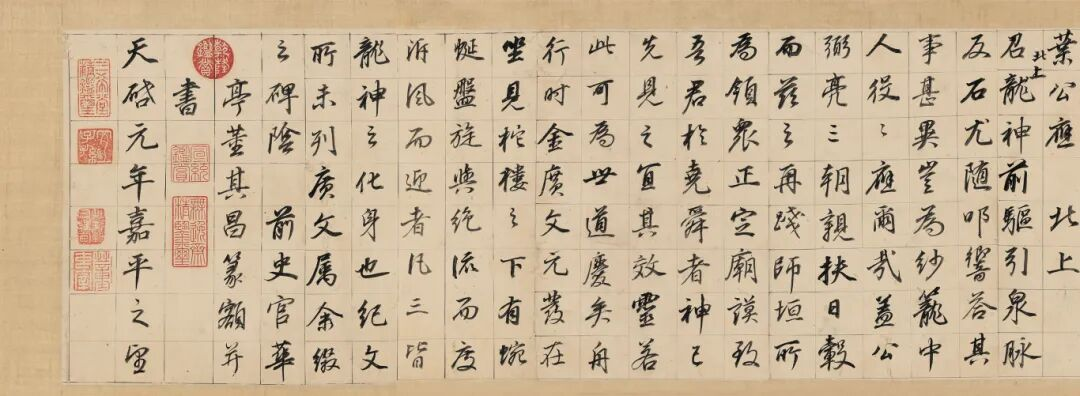 葉公應 北上
北上
召龍神前驅引泉脉
反石尤随叩響答其
事甚異豈為紗籠中
人役〻應爾哉蓋公
弼亮三朝親扶日轂
而茲之再踐師垣所
為領眾正定廟謨致
吾君於堯舜者神已
先見之宜其效靈若
此可為世道慶矣舟
行时金廣文元發在
坐見柁樓之下有蜿
蜒盤旋與絶流而度
泝風而迎者凡三皆
龍神之化身也紀文
所未列廣文属余綴
之碑陰 前史官華
亭董其昌篆額并
書
乾隆鑑賞
天啟元年嘉平之望
三希堂精鑑璽
宜子孫